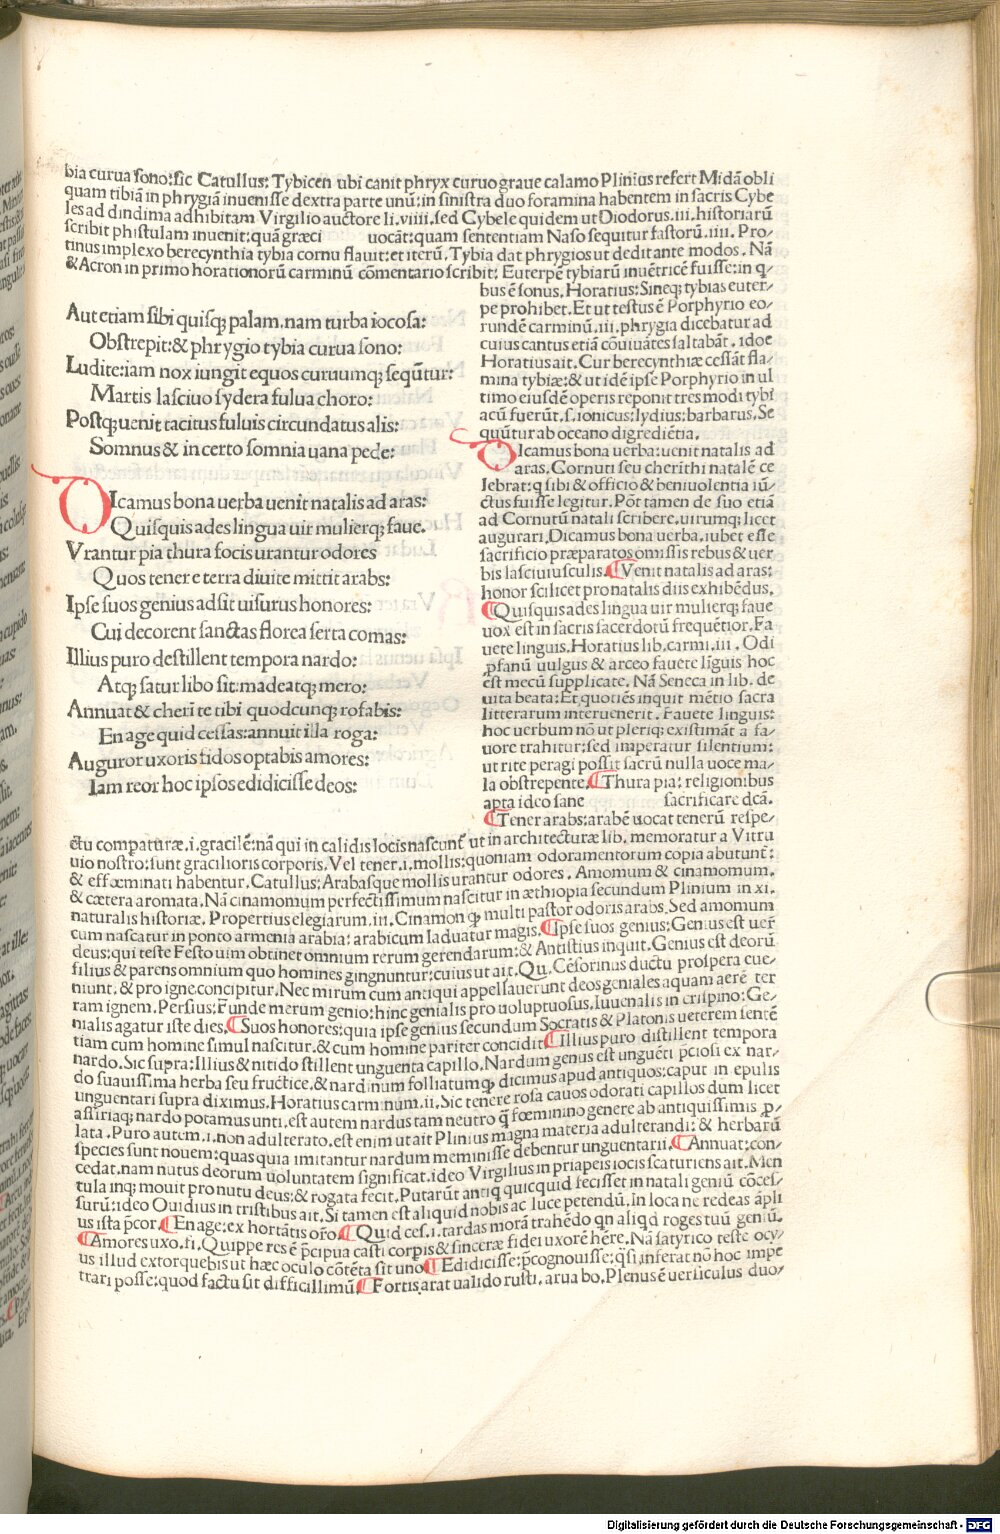 bia curua sono: sic Catullus: Tybicen ubi canit phryx curuo graue calamo Plinius refert Midã obli
quam tibiã in phrygiã inuenisse dextra parte unũ: in sinistra duo foramina habentem in sacris Cybe
les ad dindima adhibitam Virgilio auctore li. viiii. sed Cybele quidem ut Diodorus. iii. historiarũ
scribit phistulam inuenit: quã græci uocãt: quam sententiam Naso sequitur fastorũ. iiii. Pro-
tinus implexo berecynthia tybia cornu flauit: et iterũ. Tybia dat phrygios ut dedit ante modos. Nã
& Acron in primo horationorũ carminũ cõmentario scribit: Euterpẽ tybiarũ inuẽtricẽ fuisse: in q-
bus ẽ sonus. Horatius: Sineq; tybias euter-
pe prohibet. Et ut testus ẽ Porphyrio eo-
rundẽ carminũ. iii. phrygia dicebatur ad
cuius cantus etiã cõuiuãtes saltabãt. idoe
Horatius ait. Cur berecynthiæ cessãt fla-
mina tybiæ: & ut idẽ ipse Porphyrio in ul
timo eiusdẽ operis reponit tres modi tybi
acũ fuerũt. s. ionicus: lydius: barbarus. Se
quũtur ab oceano digrediẽtia.
Aut etiam sibi quisq; palam. nam turba iocosa:
Obstrepit: & phrygio tybia curua sono:
Ludite: iam nox iungit equos curuumq; sequũtur:
Martis lasciuo sydera fulua choro:
Postq; uenit tacitus fuluis circundatus alis:
Somnus & incerto somnia uana pede:
DIcamus bona uerba uenit natalis ad aras:
Quisquis ades lingua uir mulierq; faue.
Vrantur pia thura focis urantur odores
Quos tener e terra diuite mittit arabs:
Ipse suos genius adsit uisurus honores:
Cui decorent sanctas florea serta comas:
Illius puro destillent tempora nardo:
Atq; satur libo sit: madeatq; mero:
Annuat & cherite tibi quodcunq; rogabis:
En age quid cessas: annuit illa roga:
Auguror uxoris fidos optabis amores:
Iam reor hoc ipsos edidicisse deos:
DIcamus bona uerba: uenit natalis ad
aras. Cornuti seu cherithi natalẽ ce
lebrat: q sibi & officio & beniuolentia iũ-
ctus fuisse legitur. Põt tamen de suo etiã
ad Cornutũ natali scribere. uirumq; licet
augurari. Dicamus bona uerba. iubet esse
sacrificio præparatos omissis rebus & uer
bis lasciuiusculis. Venit natalis ad aras:
honor scilicet pro natalis diis exhibẽdus.
Quisquis ades lingua uir mulierq; faue
uox est in sacris sacerdotũ frequẽtior. Fa
uete linguis. Horatius lib. carmi. iii. Odi
pfanũ uulgus & arceo fauete liñguis hoc
est mecũ supplicate. Nã Seneca in lib. de
uita beata: Et quoties inquit mẽtio sacra
litterarum interuenerit. Fauete linguis:
hoc uerbum nõ ut pleriq; existimãt a fa-
uore trahitur: sed imperatur silentium:
ut rite peragi possit sacrũ nulla uoce ma-
la obstrepente. Thura pia: religionibus
apta ideo sane sacrificare dcã.
Tener arabs: arabẽ uocat tenerũ respe-
ctu compaturæ. i. gracilẽ: nã qui in calidis locis nascunt̃ ut in architecturæ lib. memoratur a Vitru
uio nostro: sunt gracilioris corporis. Vel tener. i. mollis: quoniam odoramentorum copia abutunt̃:
& effœminati habentur. Catullus: Arabasque mollis urantur odores. Amomum & cinamomum.
& cætera aromata. Nã cinamomum perfectissimum nascitur in æthiopia secundum Plinium in xi.
naturalis historiæ. Propertius elegiarum. iii. Cinamon q; multi pastor odoris arabs. Sed amomum
cum nascatur in ponto armenia arabia: arabicum laduatur magis. Ipse suos genius: Genius est uer̃
deus: qui teste Festo uim obtinet omnium rerum gerendarum: & Antistius inquit. Genius est deorũ
filius & parens omnium quo homines gingnuntur: cuius ut ait. Qu. Cẽsorinus ductu prospera eue-
niunt. & pro igne concipitur. Nec mirum cum antiqui appellauerunt deos geniales aquam aerẽ ter
ram ignem. Persius: r̃unde merum genio: hinc genialis pro uoluptuosus. Iuuenalis in crispino: Ge-
nialis agatur iste dies. Suos honores: quia ipse genius secundum Socratis & Platonis ueterem sentẽ
tiam cum homine simul nascitur. & cum homine pariter concidit. Illius puro distillent tempora
nardo. Sic supra: Illius & nitido stillent unguenta capillo. Nardum genus est unguẽti p̃ciosi ex nar-
do suauissima herba seu fructice. & nardinum folliatumq; dicimus apud antiquos: caput in epulis
unguentari supra diximus. Horatius carminum. ii. Sic tenere rosa cauos odorati capillos dum licet
assiriaq; nardo potamus unti. est autem nardus tam neutro q̃ fœminino genere ab antiquissimis p-
lata. Puro autem. i. non adulterato. est enim ut ait Plinius magna materia adulterandi: & herbarũ
species sunt nouem: quas quia imitantur nardum meminisse debentur unguentarii. Annuat: con-
cedat. nam nutus deorum uoluntatem significat. ideo Virgilius in priapeis iocis scaturiens ait. Men
tula inq; mouit pro nutu deus: & rogata fecit. Putarũt antiq quicquid fecisset in natali geniũ cõces-
surũ: ideo Ouidius in tristibus ait. Si tamen est aliquid nobis ac luce petendũ. In loca ne redeas ãpli
us ista p̃cor. En age: ex hortãtis or̃o. Quid ces. i. tardas morã trahẽdo qñ aliqd roges tuũ geniũ.
Amores uxo. fi. Quippe res ẽ p̃cipua casti corpis & sinceræ fidei uxorẽ hẽre. Nã satyrico teste ocy-
us illud extorquebis ut hæc oculo cõtẽta sit uno Edidicisse: p̃cognouisse: q̃si inferat nõ hoc impe
trari posse: quod factu sit difficillimũ. Fortis arat ualido rusti. arua bo. Plenus ẽ uersiculus duo-
Digitalisierung gefördert durch die Deutsche Forschungsgemeinschaft - DFG